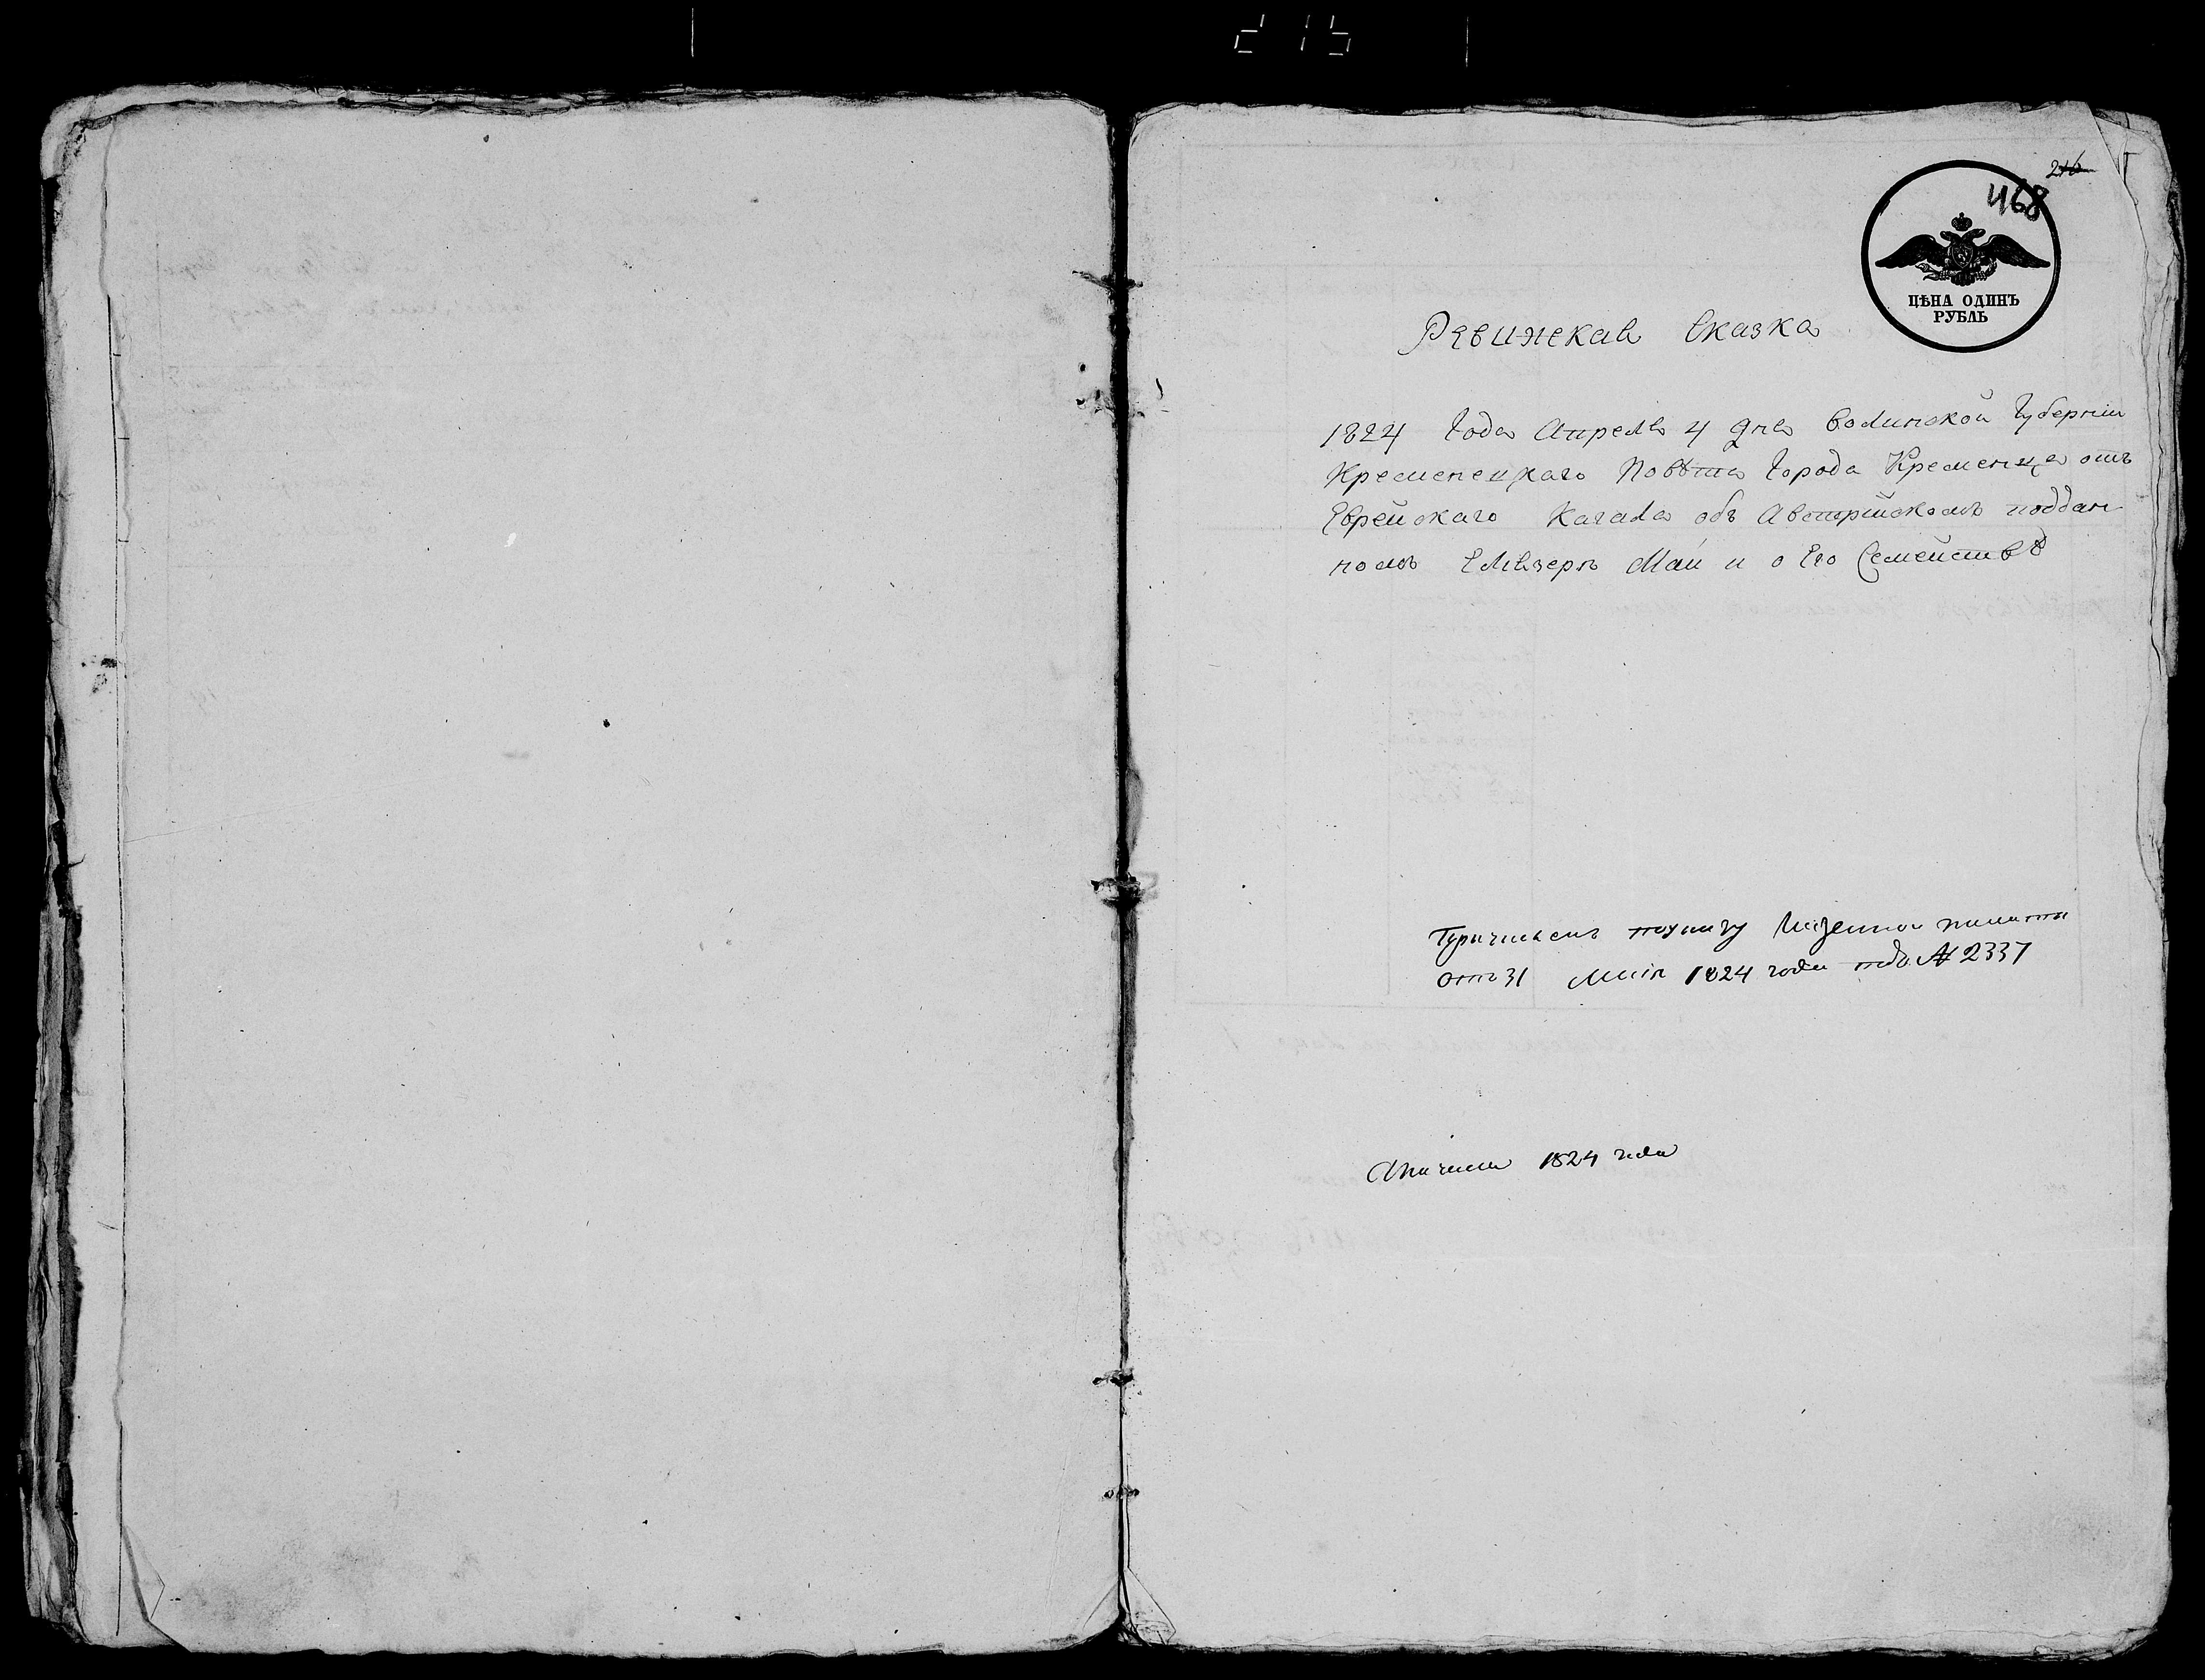 215
216
468
ЦѢНА ОДИНЪ
РУБЛЬ
Ревижская Сказка
1824 Года Апреля 4 дня Волинской Губерніи
Кременецкаго Повѣта Города Кременца отъ
Еврейскаго Кагала объ Австрійскомъ поддан
номъ Елѣзеръ Май и о Его Семействѣ
Причисленъ по указу Казенной палаты
отъ 31 Маія 1824 года подъ № 2337
1824 года